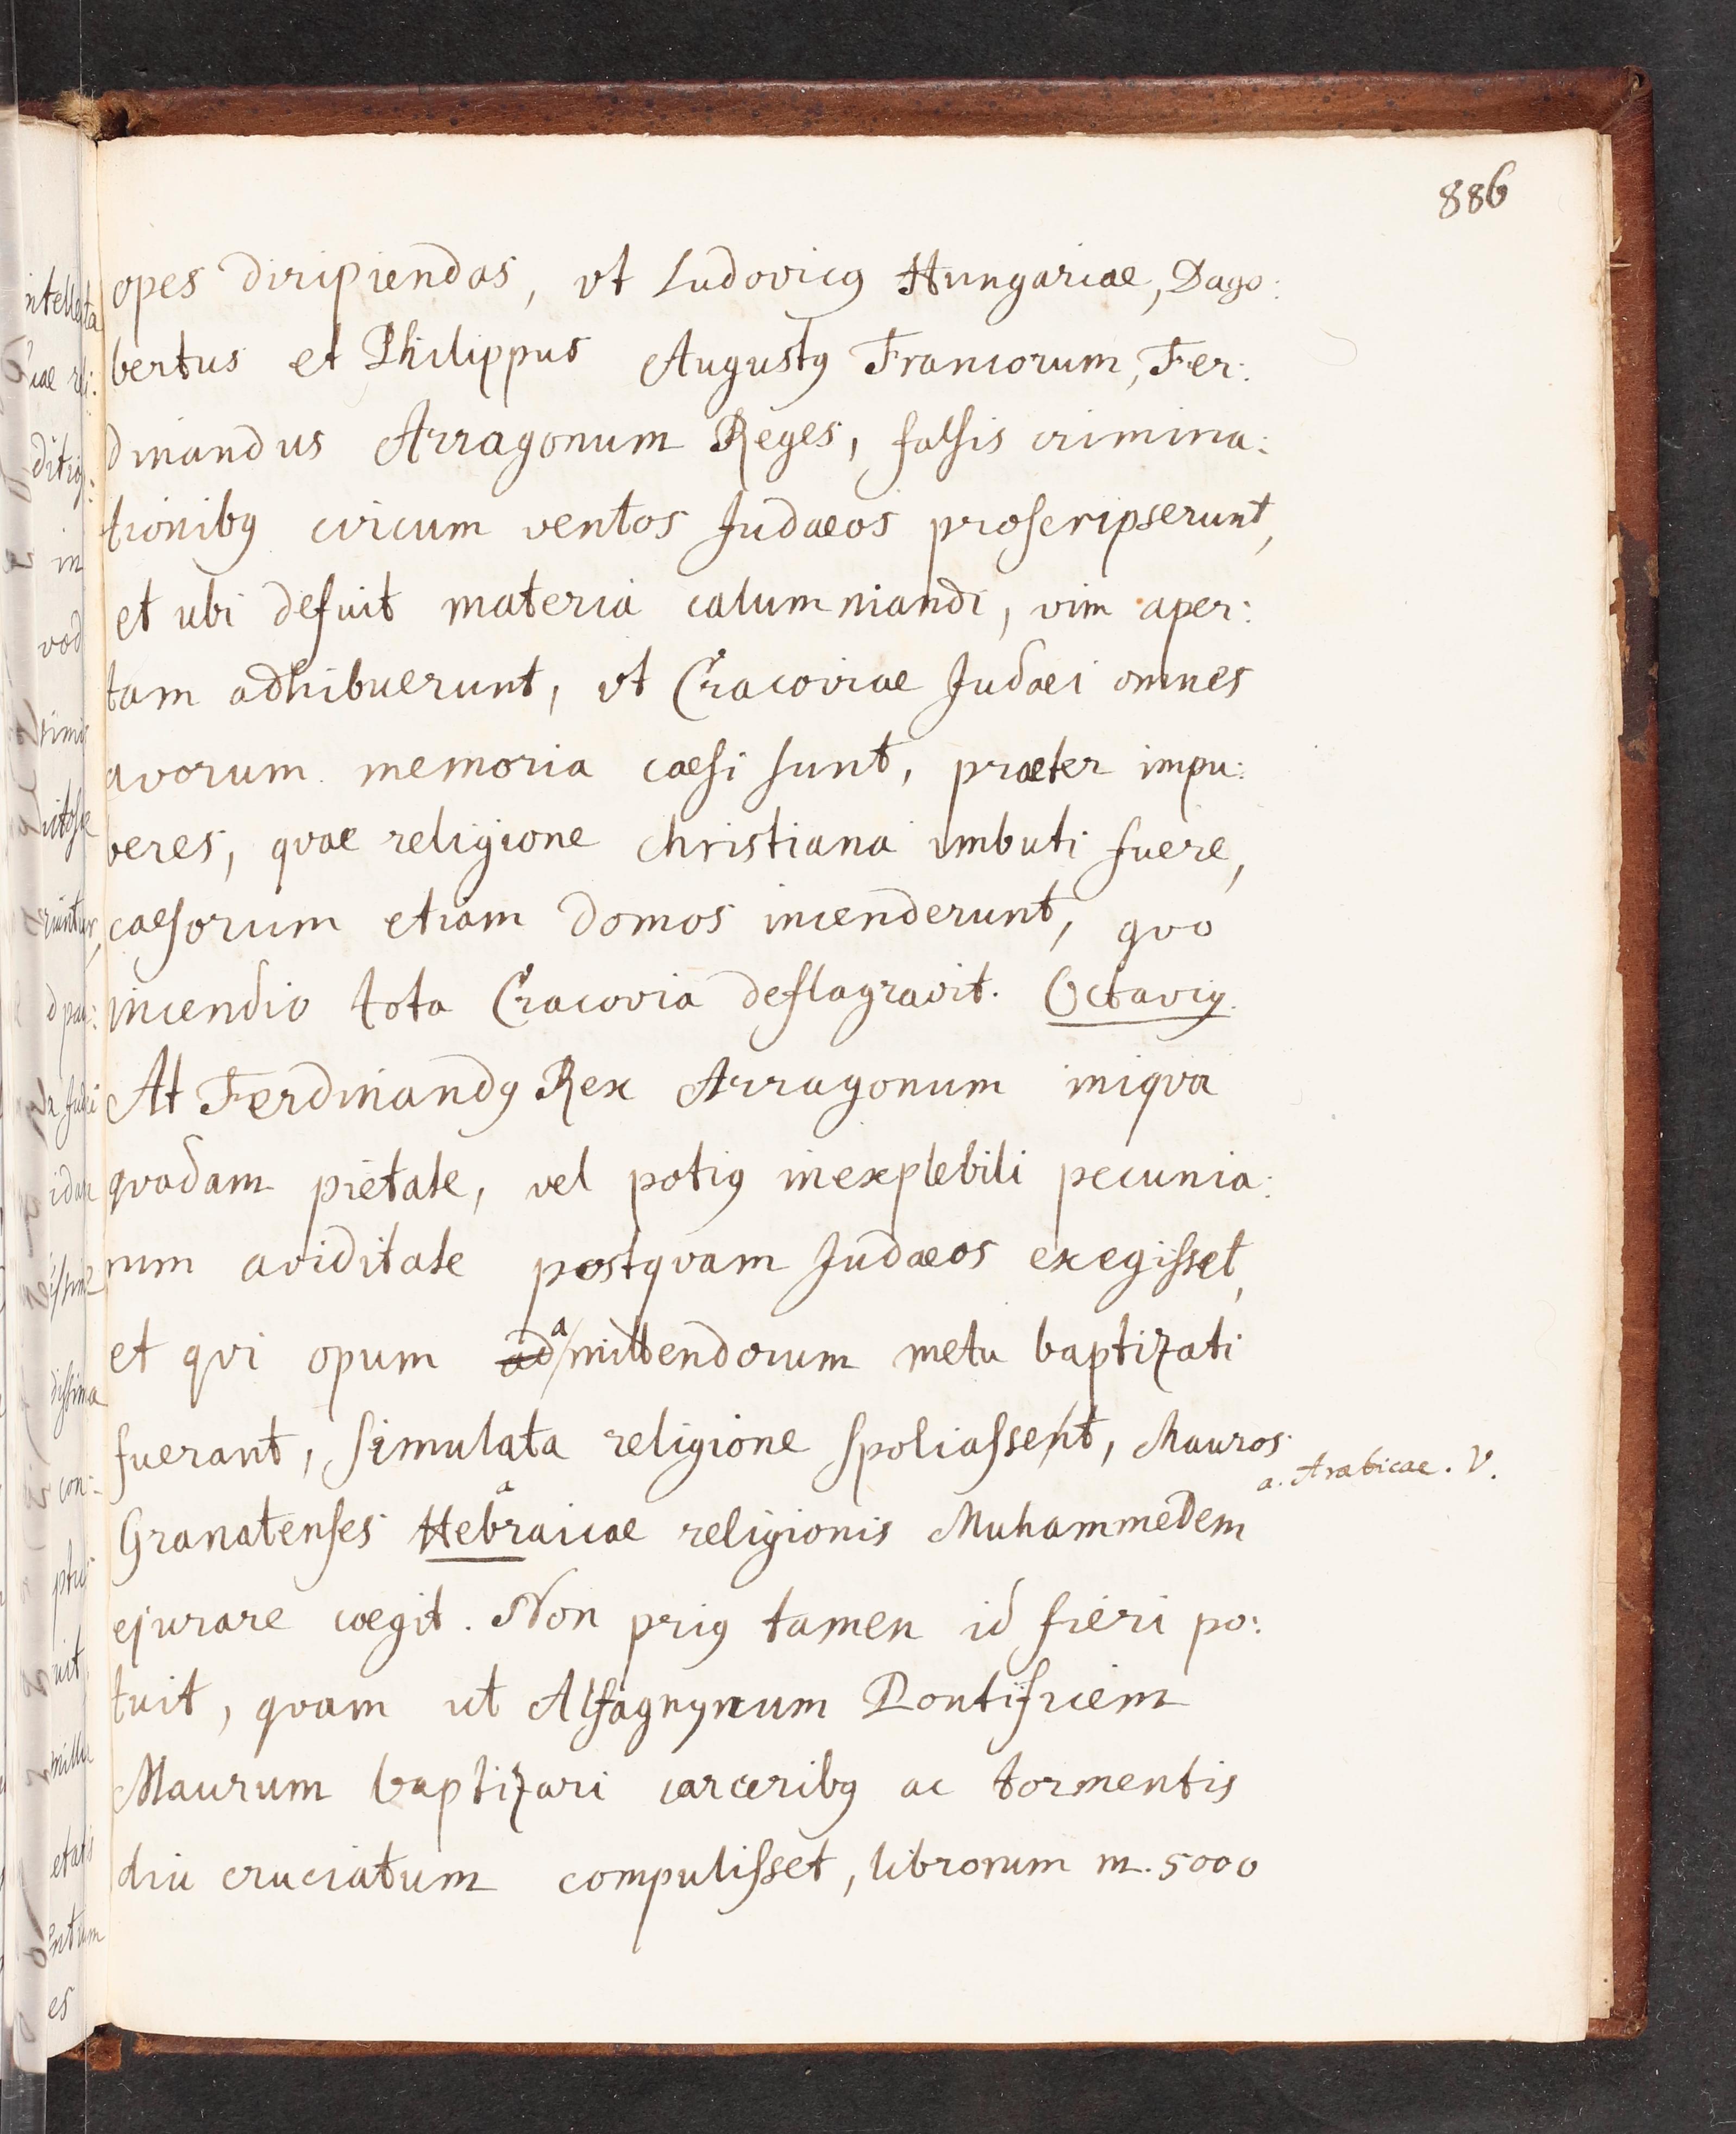 886
opes diripiendas, vt Ludovicꝰ Hungariae, Dago:
bertus et Philippus Augustꝰ Francorum, Fer:
dinandus Arragonum Reges, falsis crimina:
tionibꝰ circum ventos Judaeos proscripserunt,
et ubi defuit materia calumniandi, vim aper:
tam adhibuerunt, vt Cracoviae Judaei omnes
avorum memoria caesi sunt, praeter impu:
beres, qvae religione christiana imbuti fuere,
caesorum etiam domos incenderunt, qvo
incendio tota Cracovia deflagravit. Octaviꝰ.
At Ferdinandꝰ Rex Arragonum iniqva
qvadam pietate, vel potiꝰ inexplebili pecunia:
rum aviditate postqvam Judaeos exegisset,
et qvi opum ad a/mittendorum metu baptizati
fuerant, simulata religione spoliassent, Mauros
a. Arabicae. V.
Granatenses Hebraicae a religionis Muhammedem
ejurare coegit. Non priꝰ tamen id fieri po:
tuit, qvam ut Alfagnynum Pontificem
Maurum baptizari carceribꝰ ac tormentis
diu cruciatum compulisset, librorum m. 5000